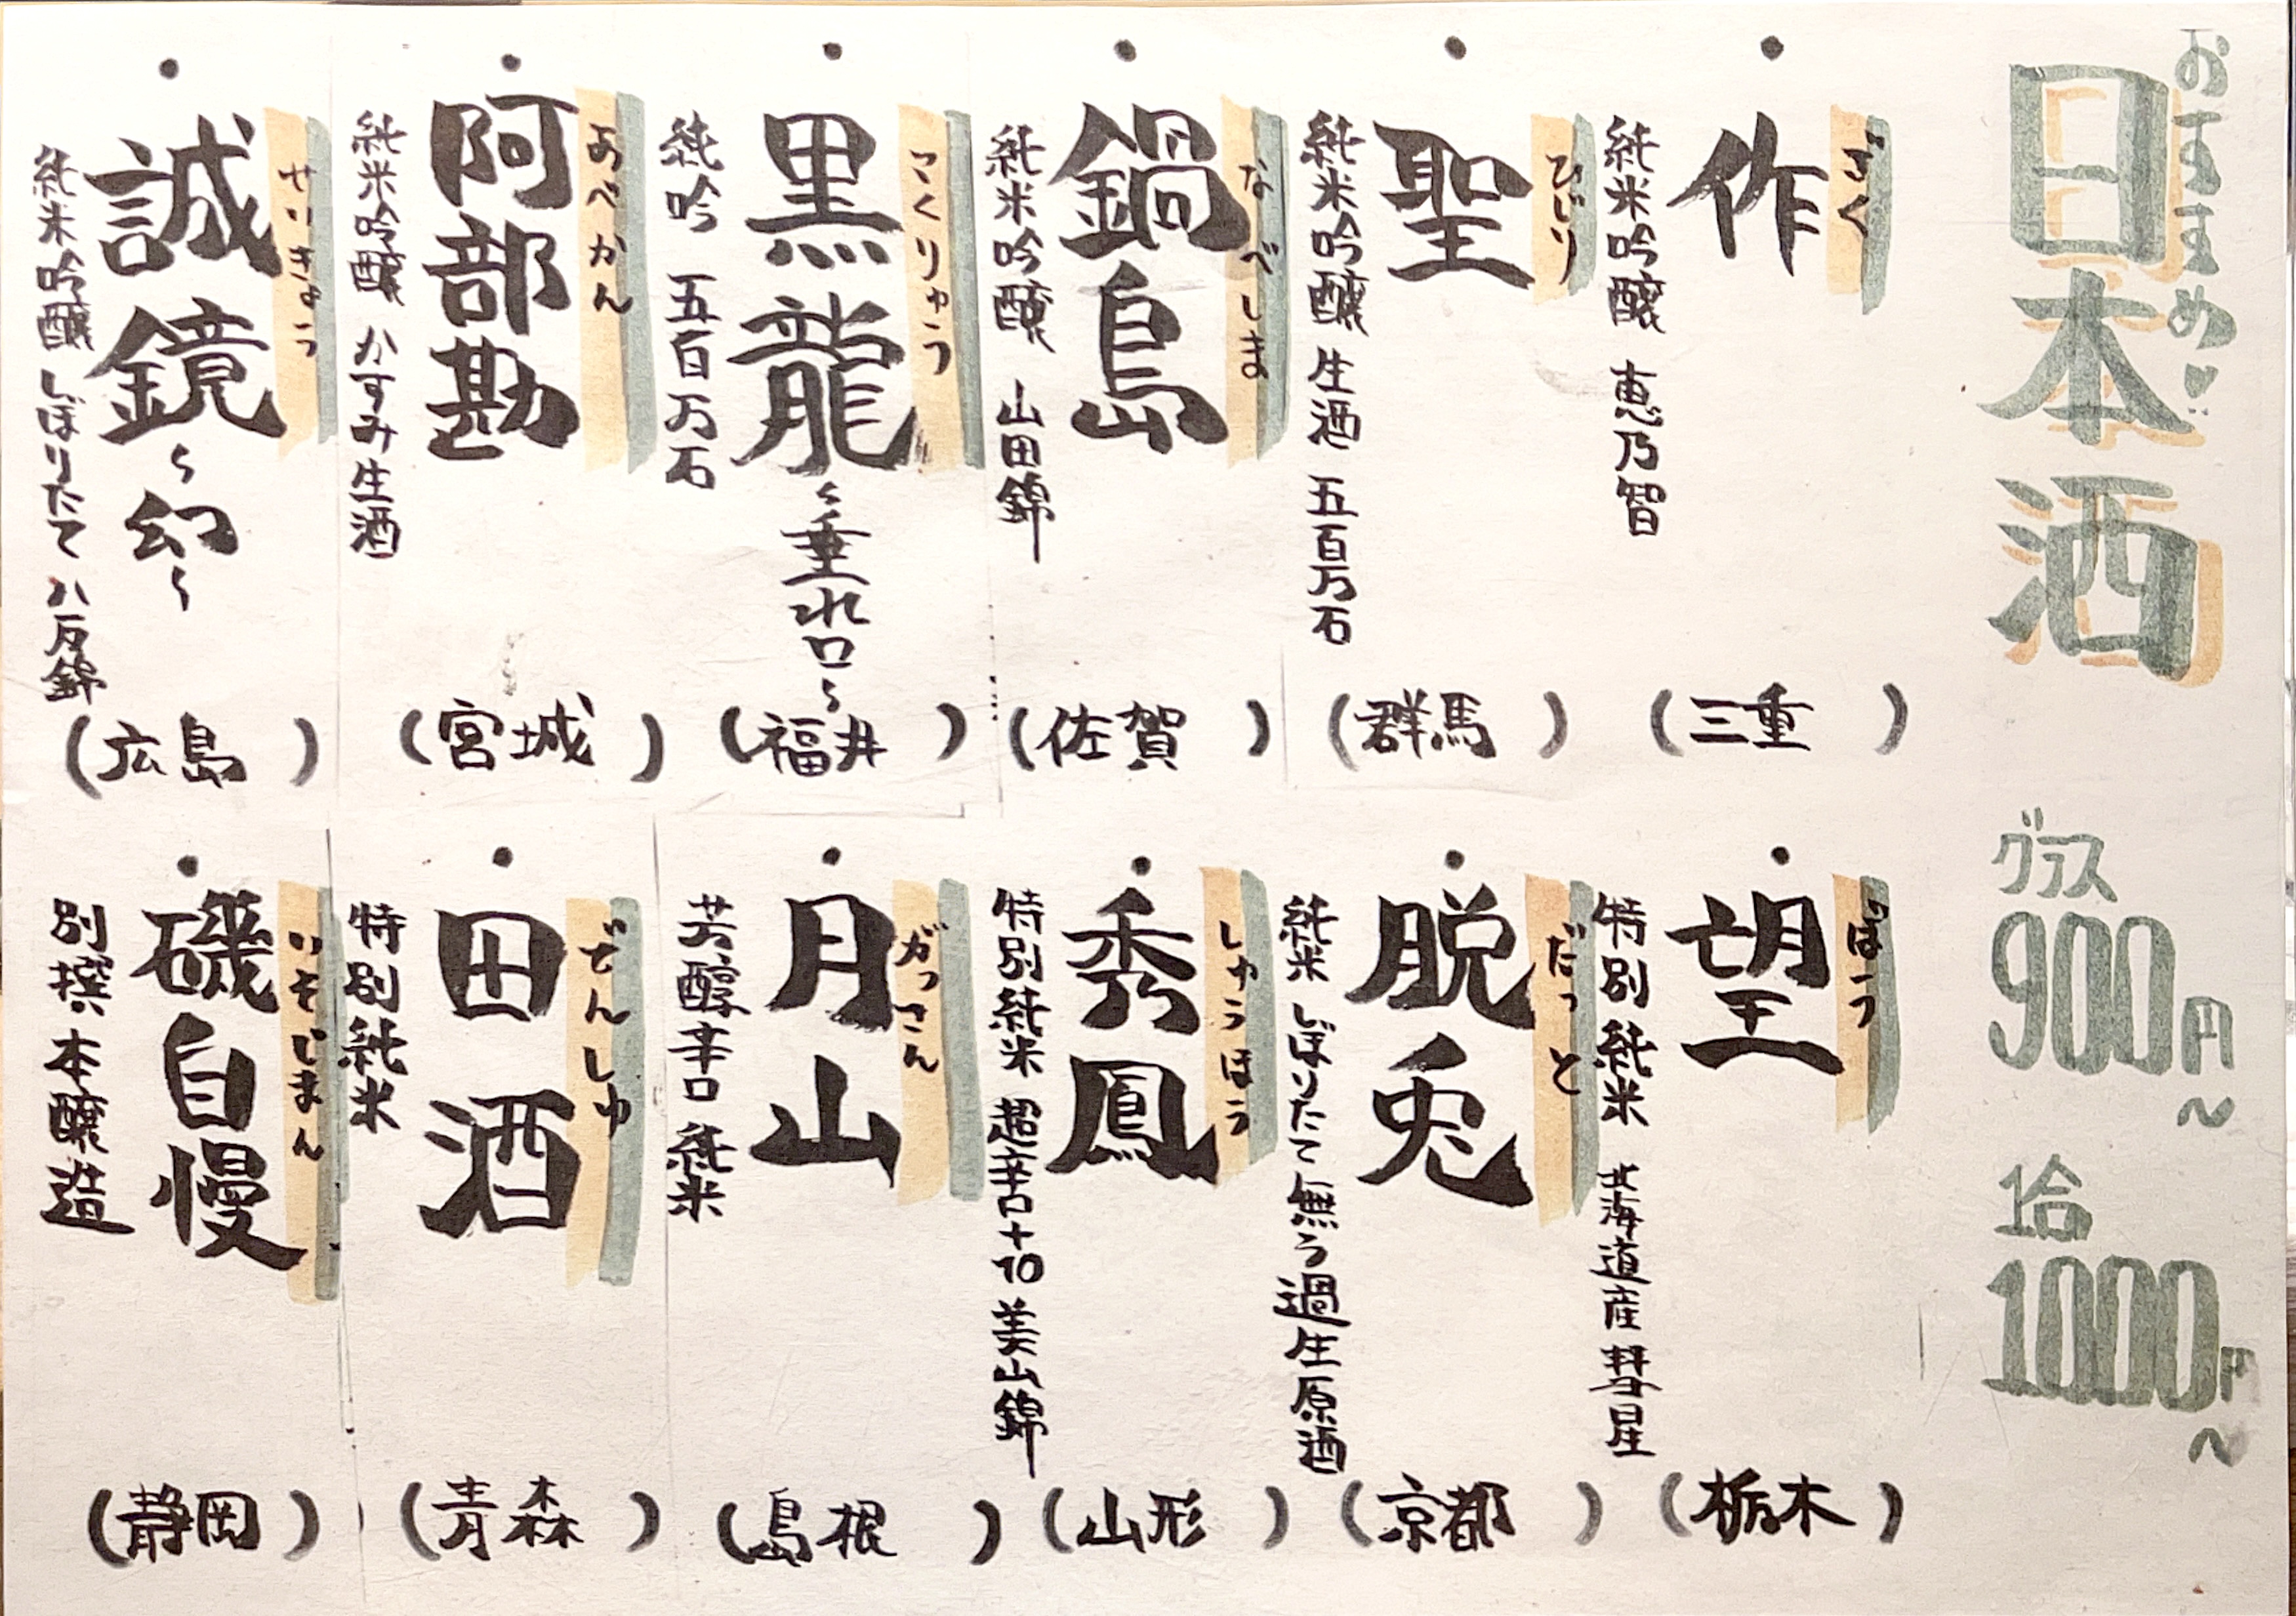 おすすめ!!
日本酒
グラス
900円~
1合
1000円~
・
ざく
作
純米吟醸 恵乃智
(三重)
・
ひじり
聖
純米吟醸 生酒 五百万石
(群馬)
・
なべしま
鍋島
純米吟醸 山田錦
(佐賀)
・
こくりゅう
黒龍~垂れ口~
純吟 五百万石
(福井)
・
あべかん
阿部勘
純米吟醸 かすみ生酒
(宮城)
・
せいきょう
誠鏡~幻~
純米吟醸 しぼりたて 八反錦
(広島)
・
ぼう
望
特別純米 北海道産 彗星
(栃木)
・
だっと
脱兎
純米 しぼりたて 無ろ過生原酒
(京都)
・
しゅうほう
秀鳳
特別純米 超辛口+10 美山錦
(山形)
・
がっさん
月山
芳醇辛口 純米
(島根)
・
でんしゅ
田酒
特別純米
(青森)
・
いそじまん
磯自慢
別撰 本醸造
(静岡)